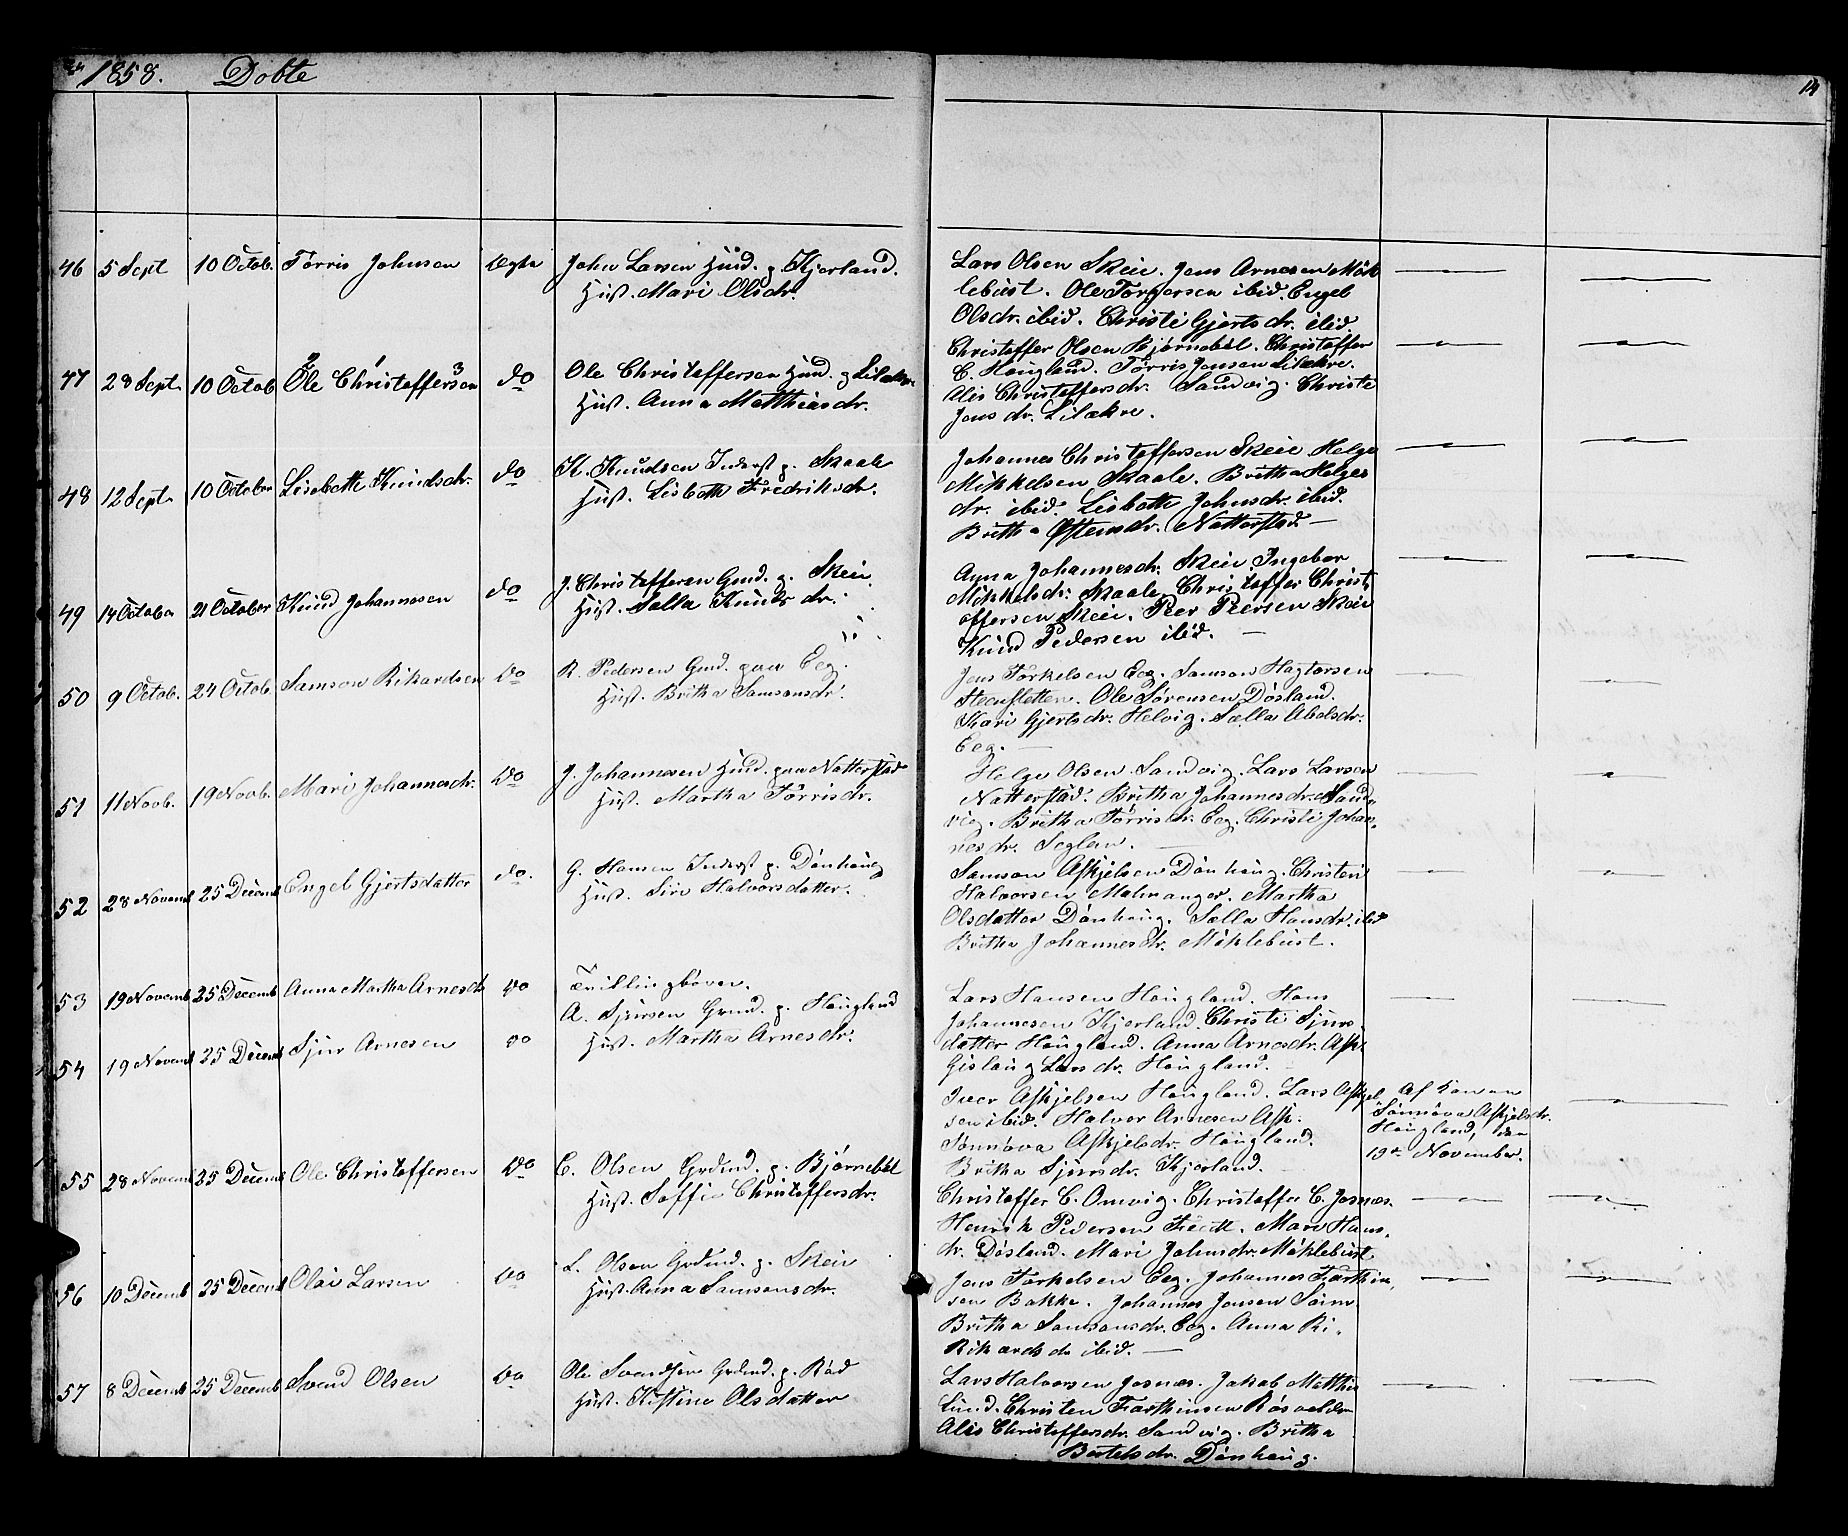 1858. Døbte
14
46 5 Sept 10 Octob. Tørris Johnsen Ægte John Larsen Huusd. p. Kjerland.
Hust. Mari Olsdr.
Lars Olsen Skeie. Jens Arnesen Mök
lebust. Ole Torgersen ibid. Engel
Olsdr. ibid. Christi Gjertsdr. ibid.
47 28 Sept. 10 Octob. Ole Christoffersen do Ole Christoffersen Huusd. p. Lilækre
Hust. Anna Matthiasdr.
Christoffer Olsen Bjørnebøl. Christoffer
C. Hougland. Tørris Jensen Lilækre.
Alis Christoffersdr. Sandvig. Christi
Jensdr. Lilækre.
48 12 Sept. 10 October Lisebette Knudsdr. do K. Knudsen Inderst p. Skaale
Hust. Lisbeth Fredriksdr.
Johannes Christoffersen Skeie Helge
Mikkelsen Skaale. Britha Helges
dr. ibid. Lisbette Johnsdr. ibid.
Britha Østensdr. Natterstad. —
49 14 October 21 October Knud Johannesen do J. Christoffersen Grud. p. Skeie
Hust. Salla Knuds dr.
Anna Johannesdr. Skeie Ingebor
Mikkelsdr. Skaale Christoffer Christ
offersen Skeie. Peer Peersen Skeie
Knud Pedersen ibid. —
50 9 Octob. 24 Octob. Samson Rikardsen do R. Pedersen Grud. paa Eeg.
Hust. Britha Samsonsdr.
Jens Torkelsen Eeg. Samson Hagtorsen
Steensletten. Ole Sørensen Døsland.
Kari Gjertsdr. Helvig. Sælla Abelsdr.
Eeg. —
51 11 Novb. 19 Novb. Mari Johannesdr. do J. Johannesen Huusd. paa Natterstad
Hust. Martha Tørrisdr.
Helge Olsen Sandvig. Lars Larsen
Natterstad. Britha Johannesdr. Sand-
vig. Britha Tørrisdr. Eeg. Christi Johan-
nesdr. Seglem. —
52 28 Novemb 25 Decemb Engel Gjertsdatter do. G. Hansen Inderst p. Dönhaug
Hust. Siri Halvorsdatter.
Samson Askjelsen Dönhaug. Christen
Halvorsen Malmanger. Martha
Olsdatter Dönhaug. Sælla Hansdr. ibid
Britha Johannesdr. Möklebust.
53 19 Novemb 25 Decemb Anna Martha Arnesdr do Tvillingbörn.
A. Sjursen Grud. p. Hougland
Hust. Martha Arnesdr.
Lars Hansen Hougland. Hans
Johannesen Kjerland. Christi Sjurs
datter Hougland. Anna Arnesdr. Ask.
Gislaug Larsdr. Hougland.
54 19 Novemb 25 Decemb Sjur Arnesen do
Iver Askjelsen Hougland. Lars Askjel
sen ibid. Halvor Arnesen Ask.
Sönnöva Askjelsdr. Hougland.
Britha Sjursdr. Kjerland. —
Af Konen
Sönnöva Askjelsdr.
Hougland, den
19de November.
55 28 Novemb 25 Decemb Ole Christoffersen do C. Olsen Grdmd. p. Bjørnebøl
Hust. Soffie Christoffersdr.
Christoffer C. Omvig. Christoffer C. Josnæs.
Henrik Pedersen Feett. Mari Hans
dr. Døsland. Mari Johnsdr. Möklebust.
56 10 Decemb 25 Decemb Olai Larsen do L. Olsen Grdmd. p. Skeie
Hust. Anna Samsonsdr.
Jens Torkelsen Eeg. Johannes Farthin
sen Bakke. Johannes Jensen Söim.
Britha Samsonsdr. Eeg. Anna Ri-
Rikardsdr ibid. —
57 8 Decemb 25 Decemb Svend Olsen do Ole Svendsen Grdmd. p. Röd
Hust. Kistine Olsdatter
Lars Halvorsen Josnæs. Jakob Matthia
Lund. Christen Farthinsen Rosendal
Alis Christoffersdr. Sandvig. Britha
Bertelsdr. Dönhaug.